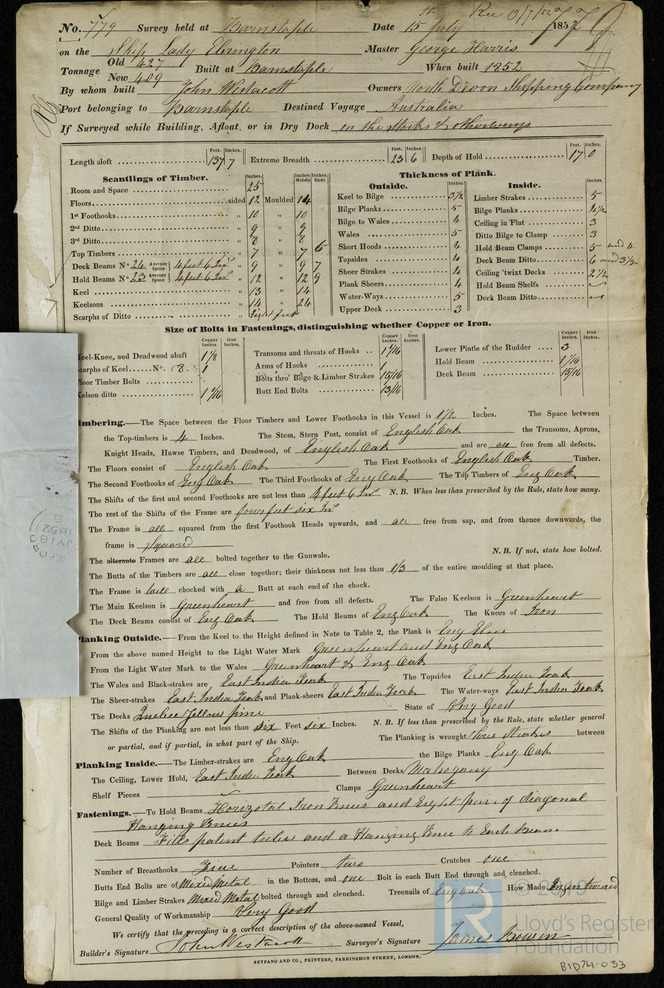 No. 779 Survey held at Barnstaple Date 15 July 1852
on the Ship Lady Ebrington Master George Harris
Tonnage Old 427 New 409 Built at Barnstaple When built 1852
By whom built John Westacott Owners North Devon Shipping Company
Port belonging to Barnstaple Destined Voyage Australia
If Surveyed while Building, Afloat, or in Dry Dock on the Stocks & afterwards
Feet. Inches. Feet. Inches. Feet. Inches.
Length aloft 137 7 Extreme Breadth 23 6 Depth of Hold 17 0
Scantlings of Timber.
Inches. Inches Middle Inches Ends
Room and Space 25
Floors sided 12 Moulded 14
1st Foothooks " 10 " 10
2nd Ditto " 9 " 9
3rd Ditto " 8 " 8
Top Timbers " 7 " 7 5
Deck Beams No. 24 Average Space 4 feet 6 In " 9 " 9 7
Hold Beams No. 23 Average Space 4 feet 6 In " 12 " 12 9
Keel " 13 " 14
Keelsons " 14 " 24
Scarphs of Ditto Eight feet
Thickness of Plank.
Outside.
Inches.
Keel to Bilge 3½
Bilge Planks 5
Bilge to Wales 4
Wales 5
Short Hoods 4
Topsides 4
Sheer Strakes 4
Plank Sheers 4
Water-Ways 5
Upper Deck 3
Inside.
Inches.
Limber Strakes 5
Bilge Planks 4½
Ceiling in Flat 3
Ditto Bilge to Clamp 3
Hold Beam Clamps 5 and 4
Deck Beam Ditto 6 and 3½
Ceiling 'twixt Decks 2½
Hold Beam Shelfs
Deck Beam Ditto
Size of Bolts in Fastenings, distinguishing whether Copper or Iron.
Copper Inches. Iron Inches. Copper Inches. Iron Inches. Copper Inches. Iron Inches.
Heel-Knee, and Deadwood abaft 1⅛
Scarphs of Keel No. 8 1
Floor Timber Bolts
Kelson ditto 1 1/16
Transoms and throats of Hooks 1 1/16
Arms of Hooks
Bolts thro' Bilge & Limber Strakes 15/16
Butt End Bolts 13/16
Lower Pintle of the Rudder 3
Hold Beam 1 1/16
Deck Beam 15/16
Timbering.—The Space between the Floor Timbers and Lower Foothooks in this Vessel is 1½ Inches. The Space between
the Top-timbers is 4 Inches. The Stem, Stern Post, consist of English Oak the Transoms, Aprons,
Knight Heads, Hawse Timbers, and Deadwood, of English Oak and are all free from all defects.
The Floors consist of English Oak The First Foothooks of English Oak Timber.
The Second Foothooks of Eng Oak The Third Foothooks of Eng Oak The Top Timbers of Eng Oak
The Shifts of the first and second Foothooks are not less than 4 feet 6 In N.B. When less than prescribed by the Rule, state how many.
The rest of the Shifts of the Frame are four feet six In
The Frame is all squared from the first Foothook Heads upwards, and all free from sap, and from thence downwards, the
frame is Squared
The alternate Frames are all bolted together to the Gunwale. N.B. If not, state how bolted.
The Butts of the Timbers are all close together; their thickness not less than 1/3 of the entire moulding at that place.
The Frame is well chocked with a Butt at each end of the chock.
The Main Keelson is Greenheart and free from all defects. The False Keelson is Greenheart
The Deck Beams consist of Eng Oak The Hold Beams of Eng Oak The Knees of Iron
Planking Outside.—From the Keel to the Height defined in Note to Table 2, the Plank is Eng Elm
From the above named Height to the Light Water Mark Greenheart and Eng Oak
From the Light Water Mark to the Wales Greenheart & Eng Oak
The Wales and Black-strakes are East Indian Teak The Topsides East Indian Teak
The Sheer-strakes East India Teak and Plank-sheers East India Teak The Water-ways East Indian Teak
The Decks Quebec Yellow pine State of Very Good
The Shifts of the Planking are not less than six Feet six Inches. N.B. If less than prescribed by the Rule, state whether general
or partial, and if partial, in what part of the Ship. The Planking is wrought three Strakes between
Planking Inside.—The Limber-strakes are Eng Oak the Bilge Planks Eng Oak
The Ceiling, Lower Hold, East Indian Teak Between Decks Mahogany
Shelf Pieces Clamps Greenheart
Fastenings.—To Hold Beams Horizotal Iron Knees and Eight pair of diagonal
Hanging Knees
Deck Beams Fills patent Riders and a Hanging Knee to Each Beam
Number of Breasthooks Five Pointers two Crutches one
Butts End Bolts are of Mixed Metal in the Bottom, and one Bolt in each Butt End through and clenched.
Bilge and Limber Strakes Mixed Metal bolted through and clenched. Treenails of Eng Oak How Made Engine turned
General Quality of Workmanship Very Good
We certify that the preceding is a correct description of the above-named Vessel,
Builder's Signature John Westacott Surveyor's Signature James Bowen
SEYFANG AND CO., PRINTERS, FARRINGDON STREET, LONDON.
© 2019
Lloyd's Register
Foundation
BID74-033